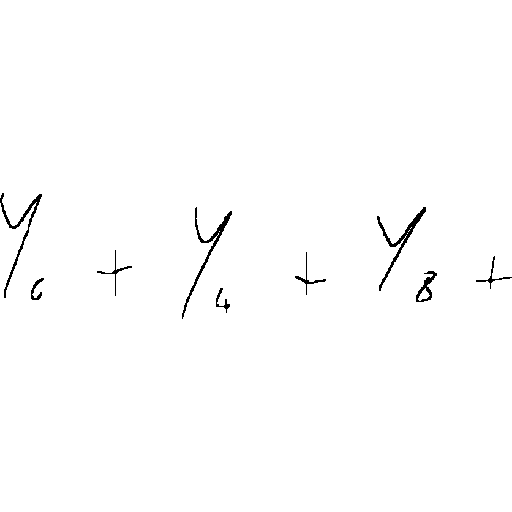 y₆ + y₄ + y₈ +